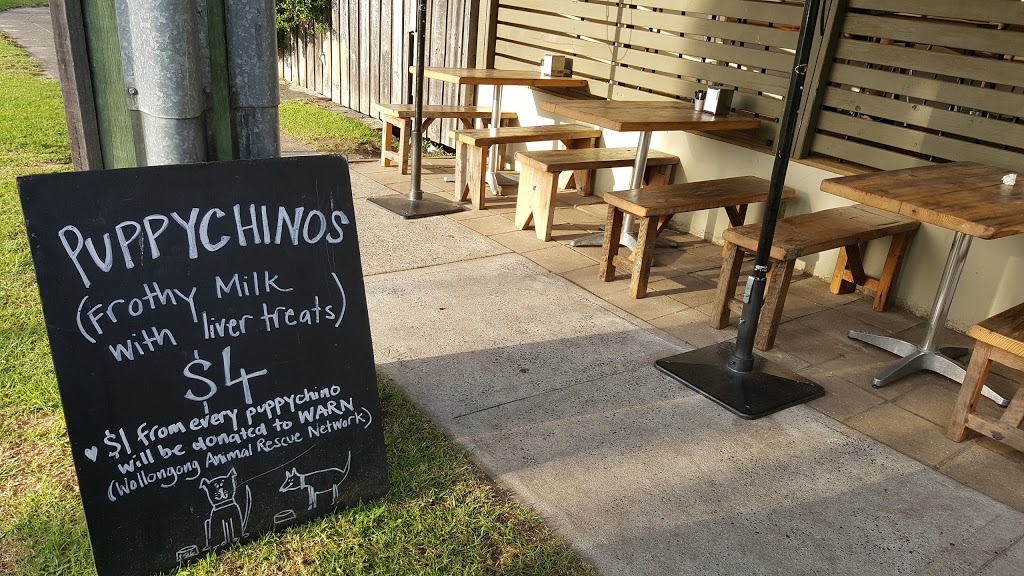 PUPPYCHINOS
(Frothy Milk
with liver treats)
$4
♥ $1 from every puppychino
will be donated to WARN
(Wollongong Animal Rescue Network)